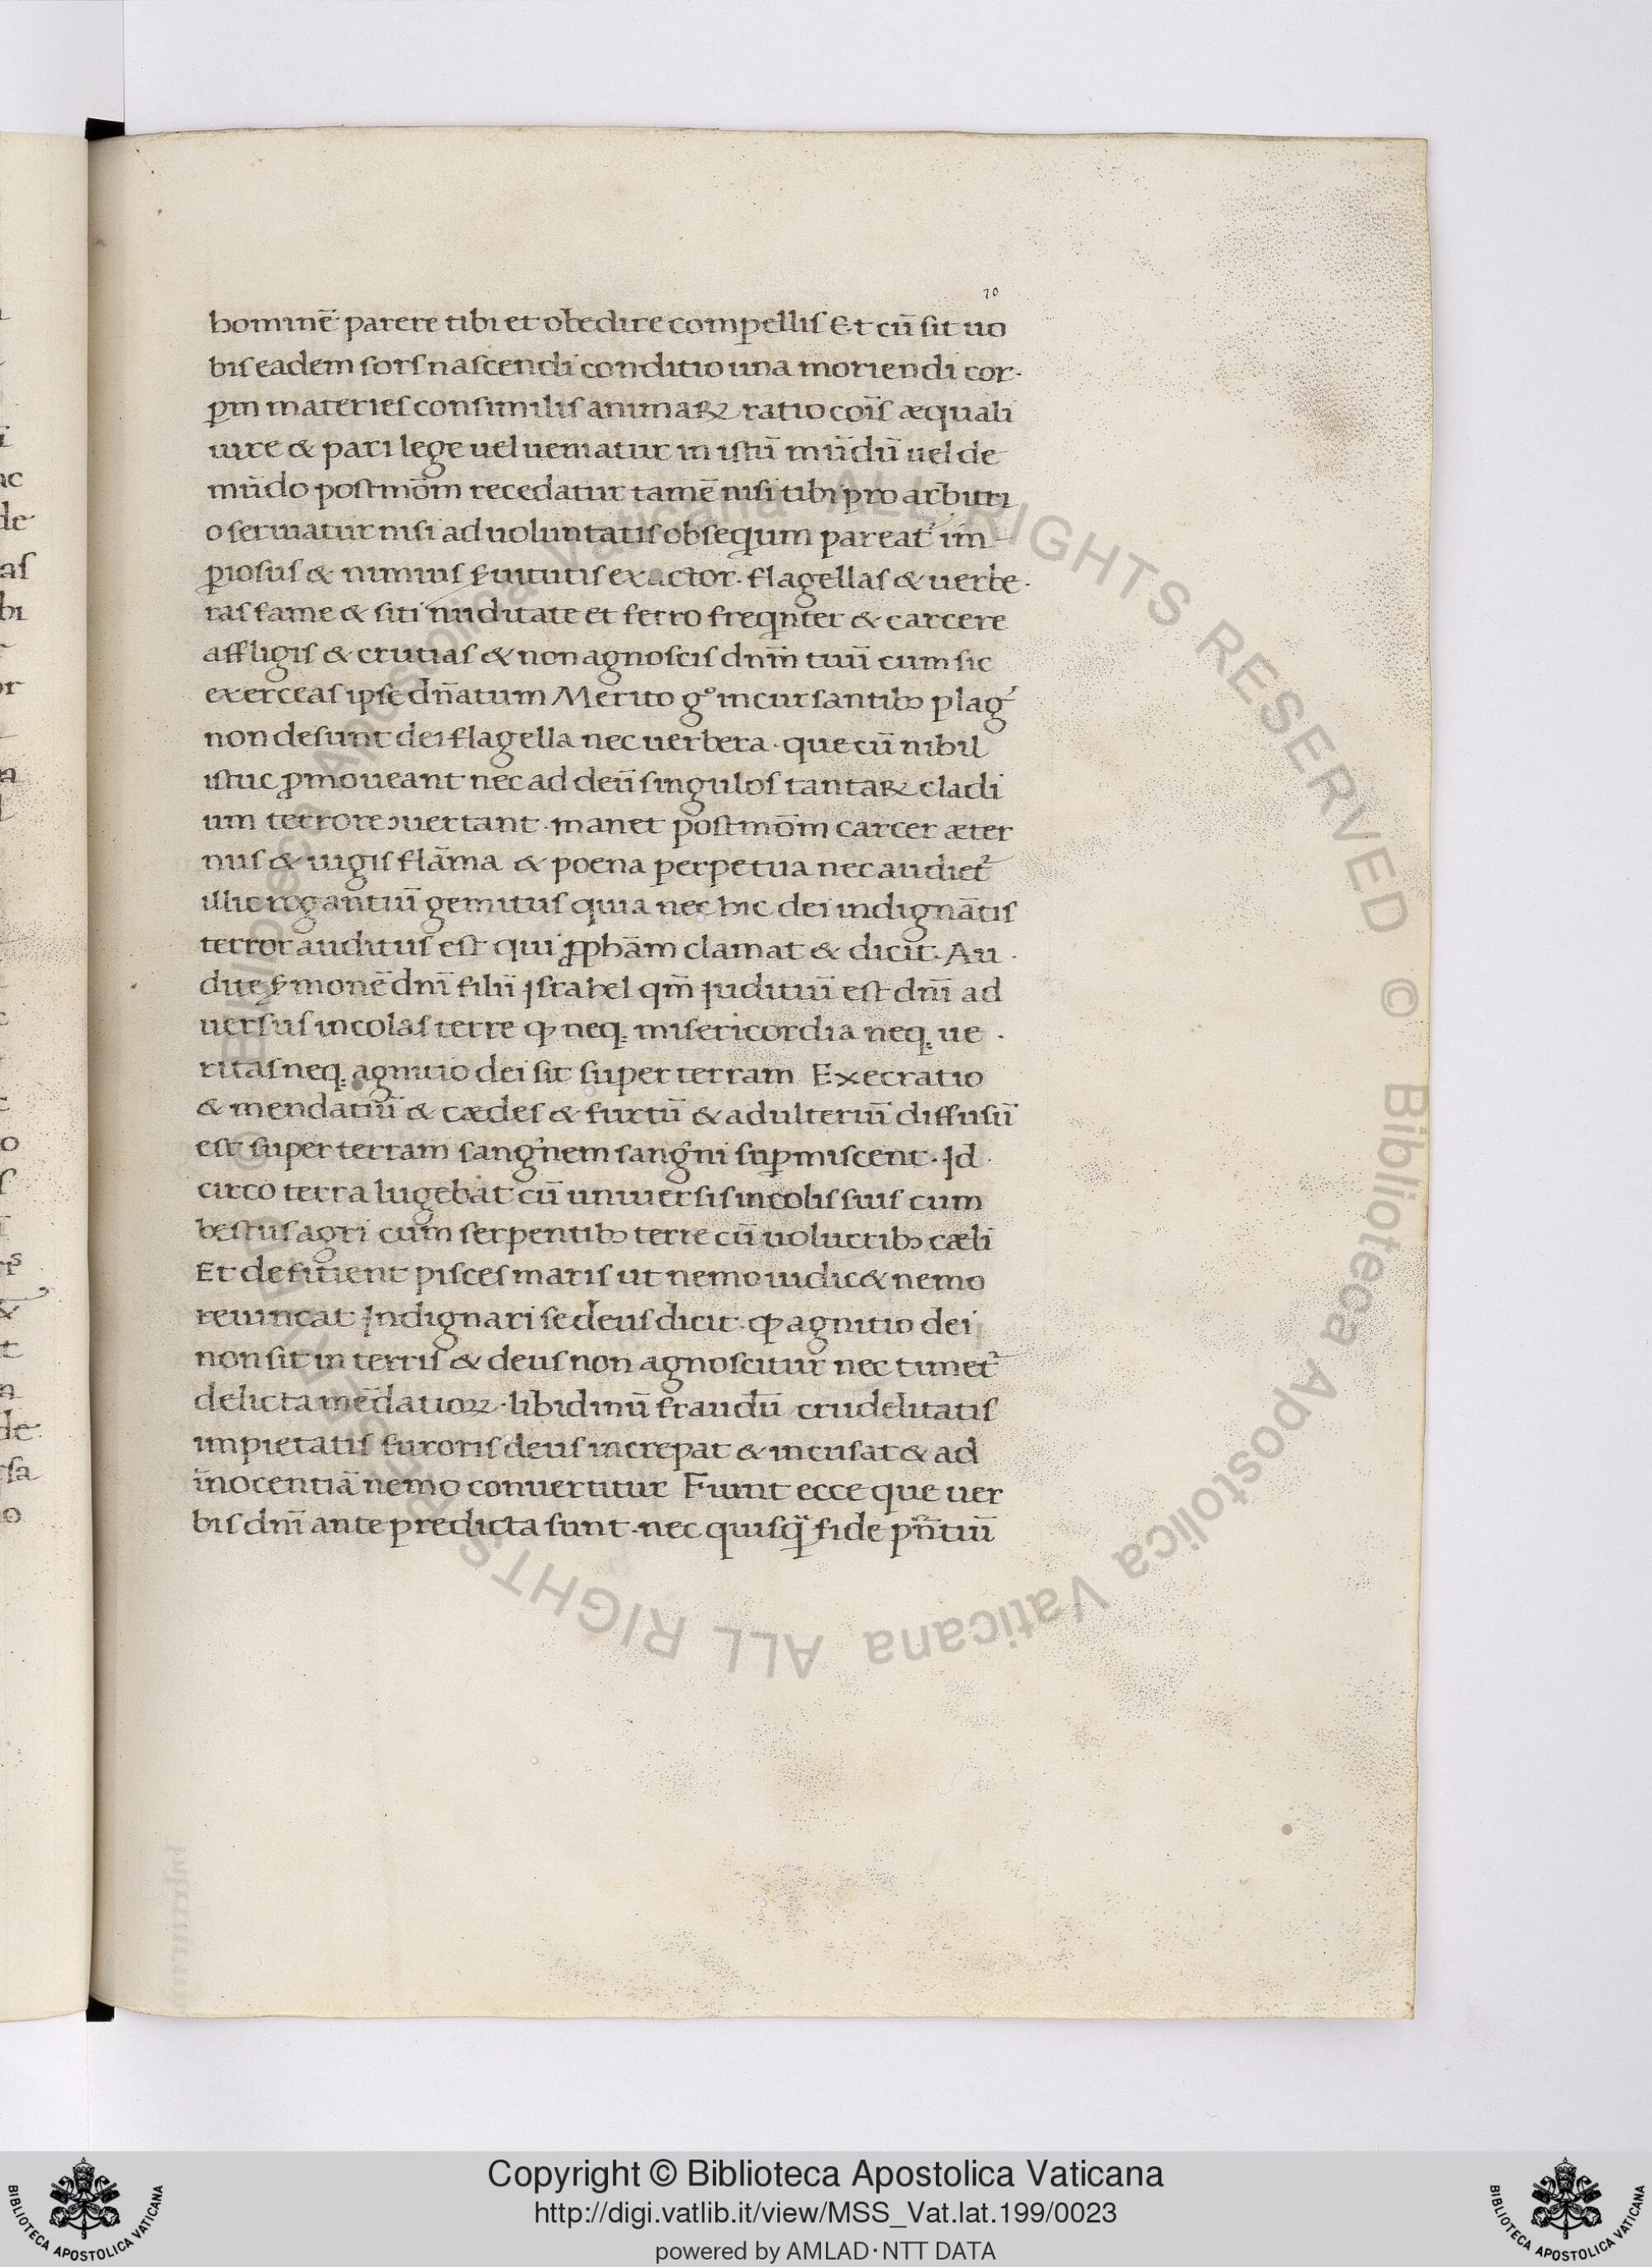 70
hominē parere tibi et obedire compellis Et cū sit uo
bis eadem sors nascendi conditio una moriendi cor·
ꝑm materies consimilis animaꝝ ratio cōis æquali
iure & pari lege uel ueniatur in istū mūdū uel de
mūdo postmōm recedatur tamē nisi tibi pro arbitri
o seruiatur nisi ad uoluntatis obsequm pareat᷑ im
ꝑiosus & nimius ẜuitutis exactor· flagellas & uerbe·
ras fame & siti nuditate et ferro freqnter & carcere
affligis & crutias & non agnoscis dnm̄ tuū cum sic
exerceas ipse dn̄atum Merito gͦ incursantibꝫ plag᷒
non desunt dei flagella nec uerbera· que cū nihil
istuc ꝓmoueant nec ad deū singulos tantaꝝ cladi
um terrore ꝯuertant· manet postmōm carcer æter
nus & iugis flāma & poena perpetua nec audiet᷑
illic rogantiū gemitus quia nec hic dei indignātis
terror auditus est qui ꝓphām clamat & dicit· Au·
dite ẜmonē dnī filii israhel qm̄ iuditiū est dnī ad
uersus incolas terre ꝙ neqꝫ misericordia neqꝫ ue·
ritas neqꝫ agnitio dei sit super terram Execratio
& mendatiū & cædes & furtū & adulteriū diffusū
est super terram sangnem sangni suꝑmiscent· Id
circo terra lugebat cū uniuersis incolis suis cum
bestiis agri cum serpentibꝫ terre cū uolucribꝫ cæli
Et defitient pisces maris ut nemo iudic& nemo
reuincat Indignari se deus dicit· ꝙ agnitio dei
non sit in terris & deus non agnoscitur nec timet᷑
delicta mēdatioꝝ· libidinū fraudū crudelitatis
impietatis furoris deus increpat & incusat & ad
īnocentiā nemo conuertitur Fiunt ecce que uer
bis dnī ante predicta sunt· nec quisꝙ̄ fide pn̄tiū
Copyright © Biblioteca Apostolica Vaticana
http://digi.vatlib.it/view/MSS_Vat.lat.199/0023
powered by AMLAD·NTT DATA